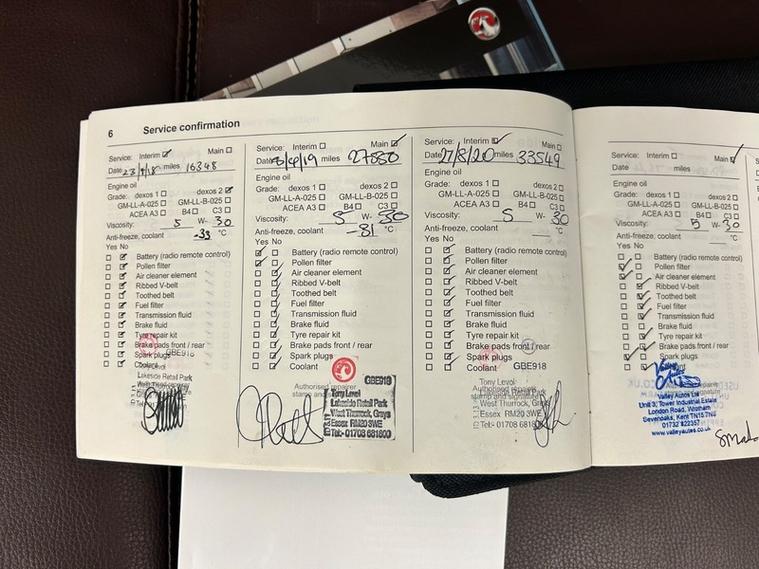 6 Service confirmation
Service: Interim Main
Date 23/9/18 miles 16348
Engine oil
Grade: dexos 1 dexos 2
GM-LL-A-025 GM-LL-B-025
ACEA A3 B4 C3
Viscosity: 5 W- 30
Anti-freeze, coolant °C
Yes No
Battery (radio remote control)
Pollen filter
Air cleaner element
Ribbed V-belt
Toothed belt
Fuel filter
Transmission fluid
Brake fluid
Tyre repair kit
Brake pads front / rear
Spark plugs
Coolant
GBE918
Tony Levol
Lakeside Retail Park
Service: Interim Main
Date miles 27550
Engine oil
Grade: dexos 1 dexos 2
GM-LL-A-025 GM-LL-B-025
ACEA A3 B4 C3
Viscosity: 5 W- 30
Anti-freeze, coolant -81 °C
Yes No
Battery (radio remote control)
Pollen filter
Air cleaner element
Ribbed V-belt
Toothed belt
Fuel filter
Transmission fluid
Brake fluid
Tyre repair kit
Brake pads front / rear
Spark plugs
Coolant
Authorised repairer
GBE918
Tony Levol
Lakeside Retail Park
West Thurrock, Grays
Essex RM20 3WE
Tel:- 01708 681800
Service: Interim Main
Date 27/8/20 miles 33549
Engine oil
Grade: dexos 1 dexos 2
GM-LL-A-025 GM-LL-B-025
ACEA A3 B4 C3
Viscosity: 5 W- 30
Anti-freeze, coolant °C
Yes No
Battery (radio remote control)
Pollen filter
Air cleaner element
Ribbed V-belt
Toothed belt
Fuel filter
Transmission fluid
Brake fluid
Tyre repair kit
Brake pads front / rear
Spark plugs
Coolant GBE918
Tony Levol
Lakeside Retail Park
West Thurrock, Grays
Essex RM20 3WE
Tel:- 01708 681800
Service: Interim Main
Date miles
Engine oil
Grade: dexos 1 dexos 2
GM-LL-A-025 GM-LL-B-025
ACEA A3 B4 C3
Viscosity: 5 W- 30
Anti-freeze, coolant °C
Yes No
Battery (radio remote control)
Pollen filter
Air cleaner element
Ribbed V-belt
Toothed belt
Fuel filter
Transmission fluid
Brake fluid
Tyre repair kit
Brake pads front / rear
Spark plugs
Coolant
Valley
Valley Autos Ltd
Unit 3, Tower Industrial Estate
London Road, Wrotham
Sevenoaks, Kent TN15 7NS
01732 822357
www.valleyautos.co.uk